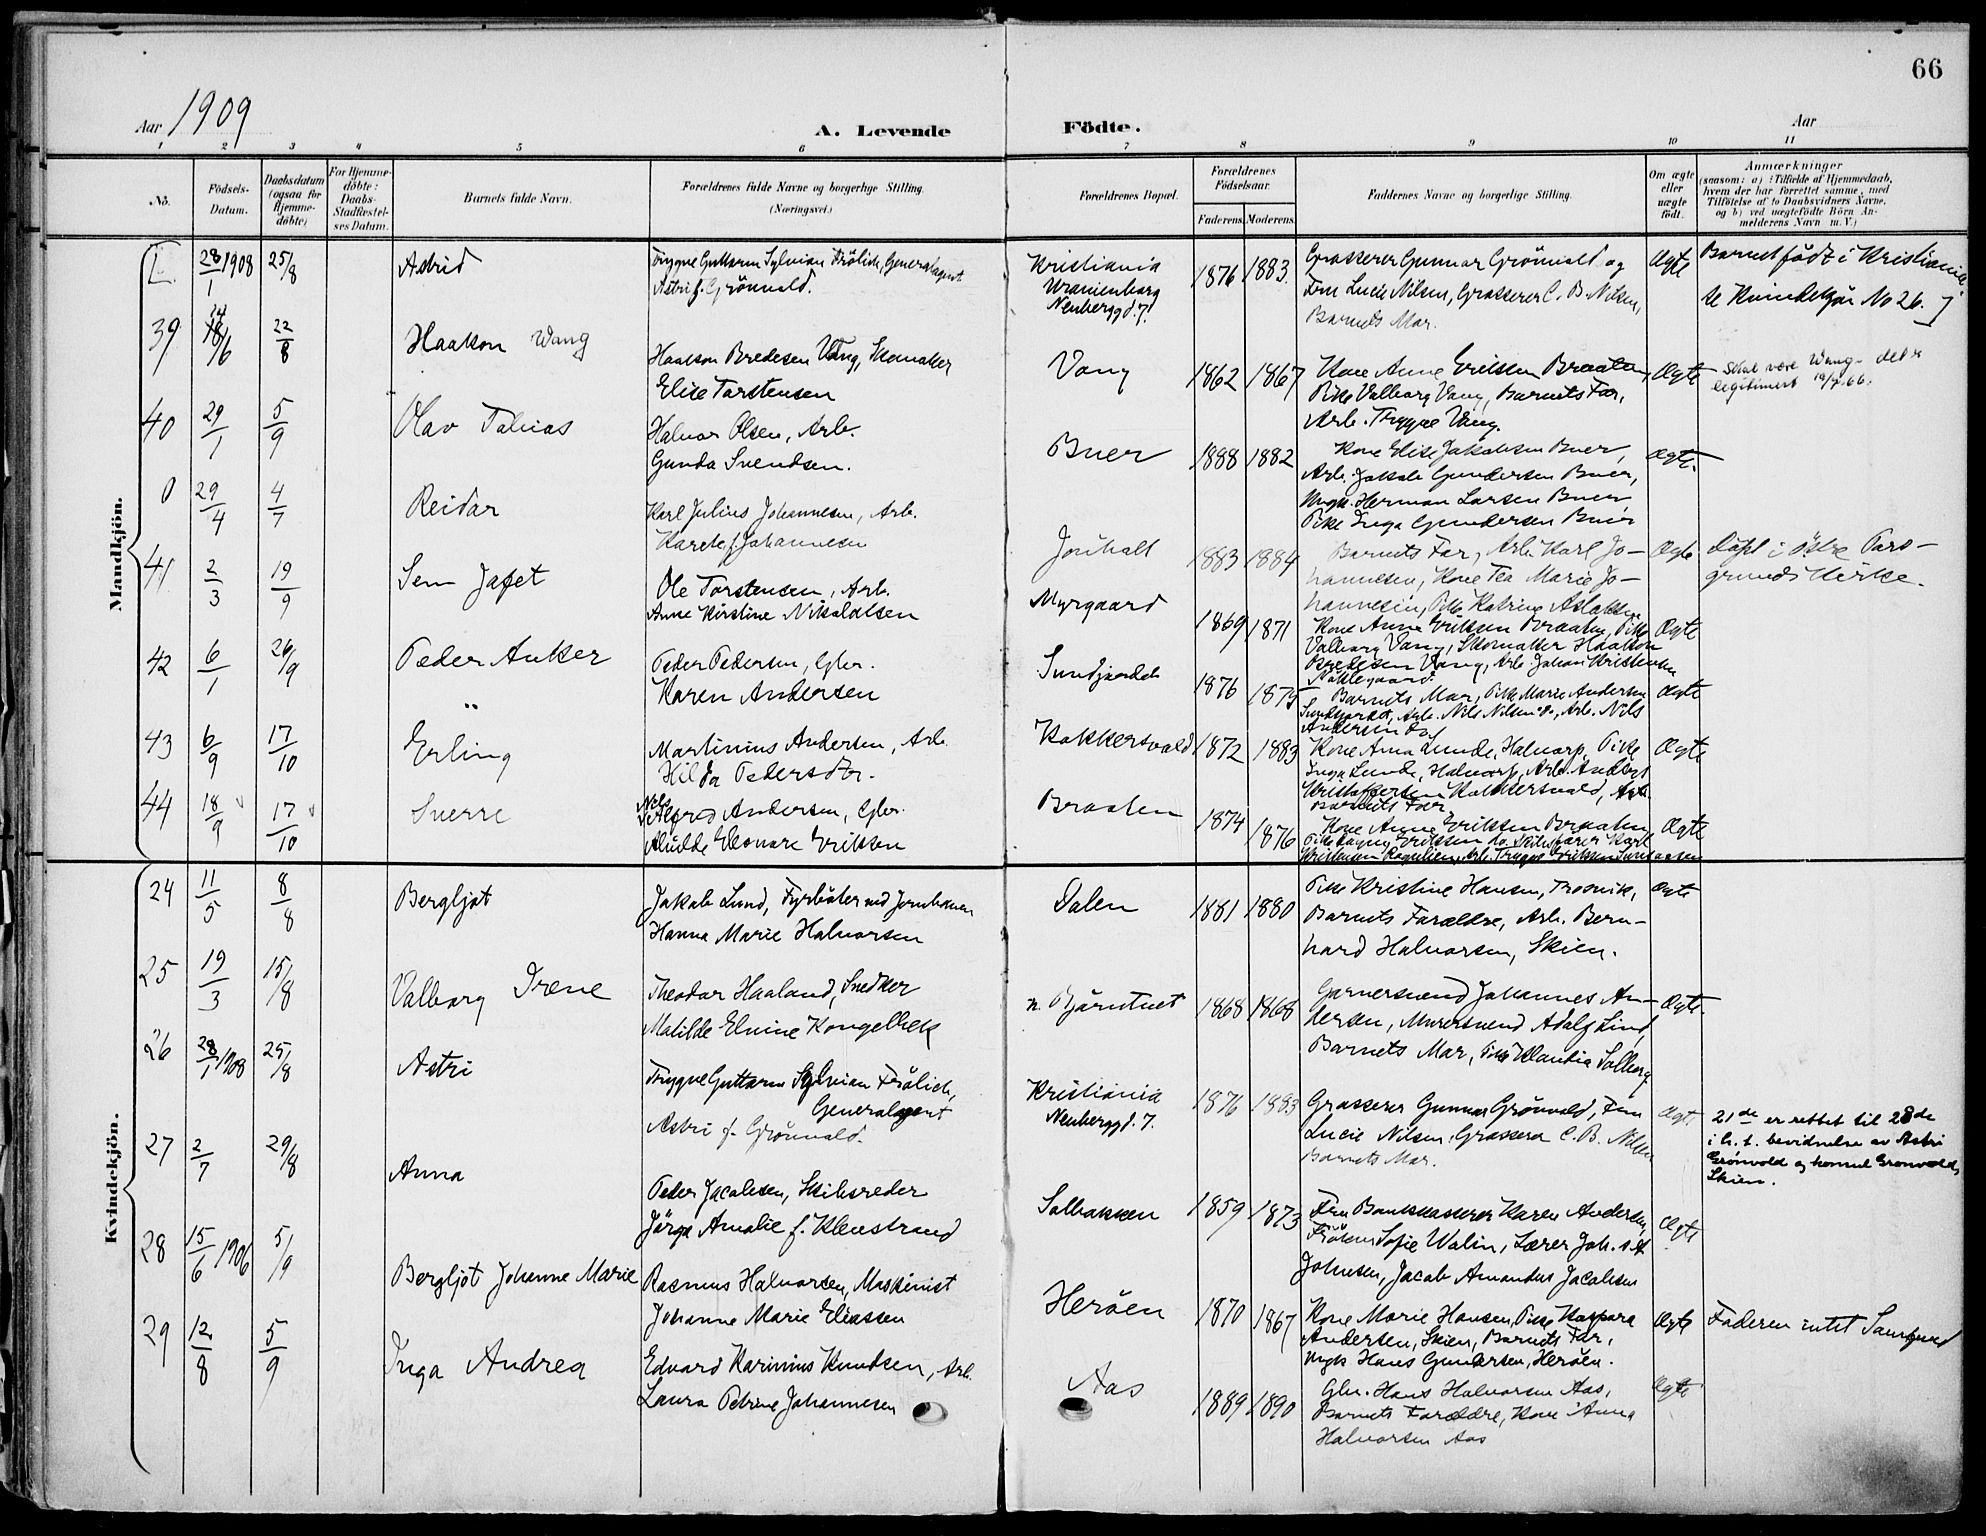 66
Aar 1909
A. Levende
Födte.
Aar
1 2 3 4 5 6 7 8 9 10 11
No.
Födsels-Datum.
Daabsdatum (ogsaa för Hjemme-döbte)
For Hjemme-döbte: Daabs-Stadfæstel-ses Datum.
Barnets fulde Navn.
Forældrenes fulde Navne og borgerlige Stilling.
(Næringsvei.)
Forældrenes Bopæl.
Forældrenes Födselsaar.
Faderens. Moderens.
Faddernes Navne og borgerlige Stilling.
Om ægte eller uægte födt.
Anmærkninger
(saasom: a) i Tilfælde af Hjemmedaab,
hvem der har forrettet samme, med
Tilföielse af to Daabsvidners Navne,
og b) ved uægtefödte Börn An-
melderens Navn m. V.)
Mandkjön.
28/1 1908 25/8 Astrid
Trygve Guttorm Sylvian Frölich, Generalagent
Astri f. Grönvold.
Kristiania
Uranienborg
Neuberggd. 7.
1876 1883
Grosserer Gunnar Grönvold og
Fru Lucie Nilsen, Grosserer C. B. Nilsen,
Barnets Mor.
Ægte
Barnet födt i Kristiania.
se Kvindekjön No 26.
39 /6 22/8 Haakon Wang
Haakon Bredesen Vang, Skomaker
Elise Torstensen
Vang
1862 1867
Kone Anne Eriksen Braaten,
Pike Valborg Vang, Barnets Far,
Arb. Trygve Vang.
Ægte
Skal være Wang - det er
legitimert 19/7.66.
40 29/1 5/9 Olav Tobias
Halvor Olsen, Arb.
Gunda Svendsen.
Buer
1888 1882
Kone Elise Jakobsen Buer,
Arb. Jakob Gundersen Buer,
Ungk. Herman Larsen Buer
Pike Inga Gundersen Buer
Ægte.
0 29/4 4/7 Reidar
Karl Julius Johannesen, Arb.
Karete f. Johannesen
Jönholt
1883 1884
Barnets Far, Arb. Karl Jo-
hannesen, Kone Tea Marie Jo-
hannesen, Pike Katrine Aslaksen
Ægte
Döpt i Östre Pors-
grunds Kirke.
41 2/3 19/9 Sem Jafet
Ole Torstensen, Arb.
Anne Kirstine Nikolaisen
Myrgaard
1869 1871
Kone Anne Eriksen Braaten, Pike
Valborg Vang, Skomaker Haakon
Bredesen Vang, Arb. Johan Kristensen
Ægte
42 6/1 26/9 Peder Anker
Peder Pedersen, Gbr.
Karen Andersen
Sundjordet
1876 1875
Barnets Mor, Pike Marie Andersen
Sundjordet, Arb. Nils Nilsen do., Arb. Nils
Andersen do.
Ægte
43 6/9 17/10 Erling
Martinius Andersen, Arb.
Hilda Pedersdtr.
Kokkersvold
1872 1883
Kone Anna Lunde, Halvarp, Pike
Inga Lunde, Halvarp, Arb. Andreas
Kristoffersen Kokkersvold, Arb.
Barnets Far
Ægte
44 18/9 17/10 Sverre
Nils Alfred Andersen, Gbr.
Alvilde Eleonore Eriksen
Braaten
1874 1876
Kone Anne Eriksen Braaten
Ægte
Kvindekjön.
24 11/5 8/8 Bergljot
Jakob Lund, Fyrböter ved Jernbanen
Hanna Marie Halvorsen
Dalen
1881 1880
Pike Kristine Hansen, Trosvik,
Barnets Forældre, Arb. Bern-
hard Halvorsen, Skien.
Ægte
25 19/3 15/8 Valborg Irene
Theodor Haaland, Snedker
Matilde Elvine Kongelbek
n. Björntvet
1868 1868
Garversvend Johannes An-
dersen, Murersvend Adolf Lind,
Barnets Mor, Pike Klaudia Solberg
Ægte.
26 28/1 1908 25/8 Astri
Trygve Guttorm Sylvian Frölich,
Generalagent
Astri f. Grönvold.
Kristiania
Neuberggd. 7.
1876 1883
Grosserer Gunnar Grönvold, Fru
Lucie Nilsen, Grosserer C. B. Nilsen
Barnets Mor.
Ægte
21de er rettet til 28de
i h. t. bevidnelse av Astri
Grönvold og konsul Grønvold,
Skien.
27 2/7 29/8 Anna
Peder Jacobsen, Skibsreder
Jörga Amalie f. Klenstrand
Solbakken
1859 1873
Fru Bankkasserer Karen Andersen,
Fröken Sofie Walin, Lærer Joh. s. A.
Johnsen, Jacob Amandus Jacobsen
Ægte
28 15/6 1906 5/9 Bergljot Johanne Marie
Rasmus Halvorsen, Maskinist
Johanne Marie Eliassen
Heröen
1870 1867
Kone Marie Hansen, Pike Kaspara
Andersen, Skien, Barnets Far,
Ungk. Hans Gundersen, Heröen.
Ægte
Faderen intet Samfund
29 12/8 5/9 Inga Andrea
Edvard Karinius Knudsen, Arb.
Laura Petrine Johannesen
Aas
1889 1890
Gbr. Hans Halvorsen Aas,
Barnets Forældre, Kone Anna
Halvorsen Aas
Ægte